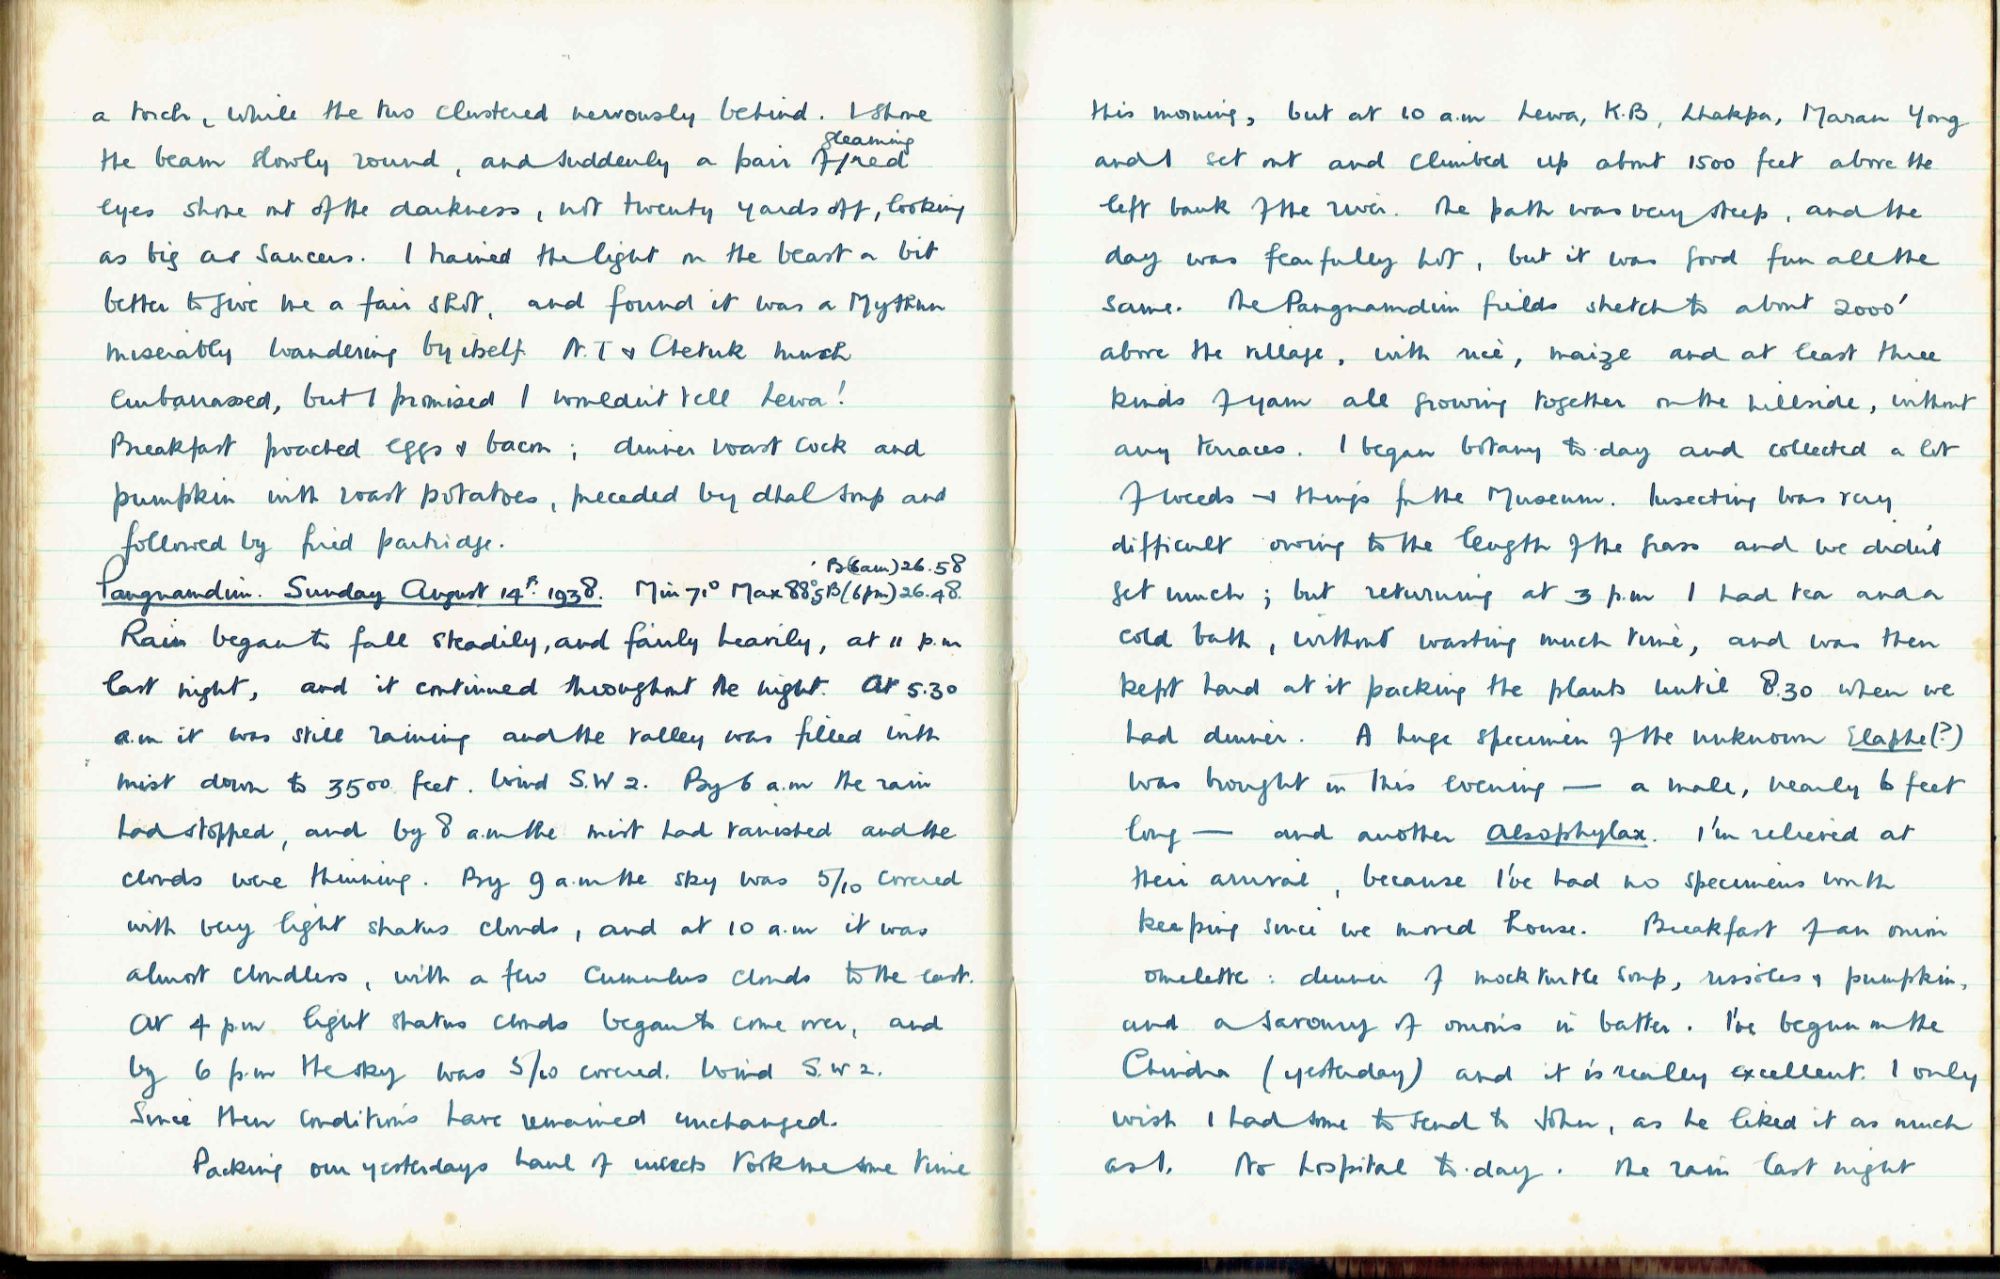 a torch, while the two clustered nervously behind. I shone
the beam slowly round, and suddenly a pair of gleaming red
eyes shone out of the darkness, not twenty yards off, looking
as big as saucers. I trained the light on the beast a bit
better to give me a fair shot, and found it was a Mythun
miserably wandering by itself. N.T & Chetuk much
embarrassed, but I promised I wouldn't tell Lewa!
Breakfast poached eggs & bacon; dinner roast cock and
pumpkin with roast potatoes, preceded by dhal soup and
followed by fried partridge.
Pangnamdim. Sunday August 14th. 1938. Min 71° Max 88°.5 B(6am) 26.58 B(6pm) 26.48.
Rain began to fall steadily, and fairly heavily, at 11 p.m
last night, and it continued throughout the night. At 5.30
a.m it was still raining and the valley was filled with
mist down to 3500 feet. Wind S.W 2. By 6 a.m the rain
had stopped, and by 8 a.m the mist had vanished and the
clouds were thinning. By 9 a.m the sky was 5/10 covered
with very light stratus clouds, and at 10 a.m it was
almost cloudless, with a few cumulus clouds to the east.
At 4 p.m light stratus clouds began to come over, and
by 6 p.m the sky was 5/10 covered. Wind S.W 2.
Since then conditions have remained unchanged.
Packing our yesterdays haul of insects took me some time
this morning, but at 10 a.m Lewa, K.B, Lhakpa, Maran Yong
and I set out and climbed up about 1500 feet above the
left bank of the river. The path was very steep, and the
day was fearfully hot, but it was good fun all the
same. The Pangnamdim fields stretch to about 2000'
above the village, with rice, maize and at least three
kinds of yam all growing together on the hillside, without
any terraces. I began botany to-day and collected a lot
of weeds & things for the Museum. Insecting was very
difficult owing to the length of the grass and we didn't
get much; but returning at 3 p.m I had tea and a
cold bath, without wasting much time, and was then
kept hard at it packing the plants until 8.30 when we
had dinner. A huge specimen of the unknown Elaphe(?)
was brought in this evening — a male, nearly 6 feet
long — and another Alsophylax. I'm relieved at
their arrival, because I've had no specimens worth
keeping since we moved house. Breakfast of an onion
omelette: dinner of mock turtle soup, rissoles & pumpkin,
and a savoury of onions in batter. I've begun on the
Chindra (yesterday) and it is really excellent. I only
wish I had some to send to John, as he liked it as much
as I. No hospital to-day. The rain last night